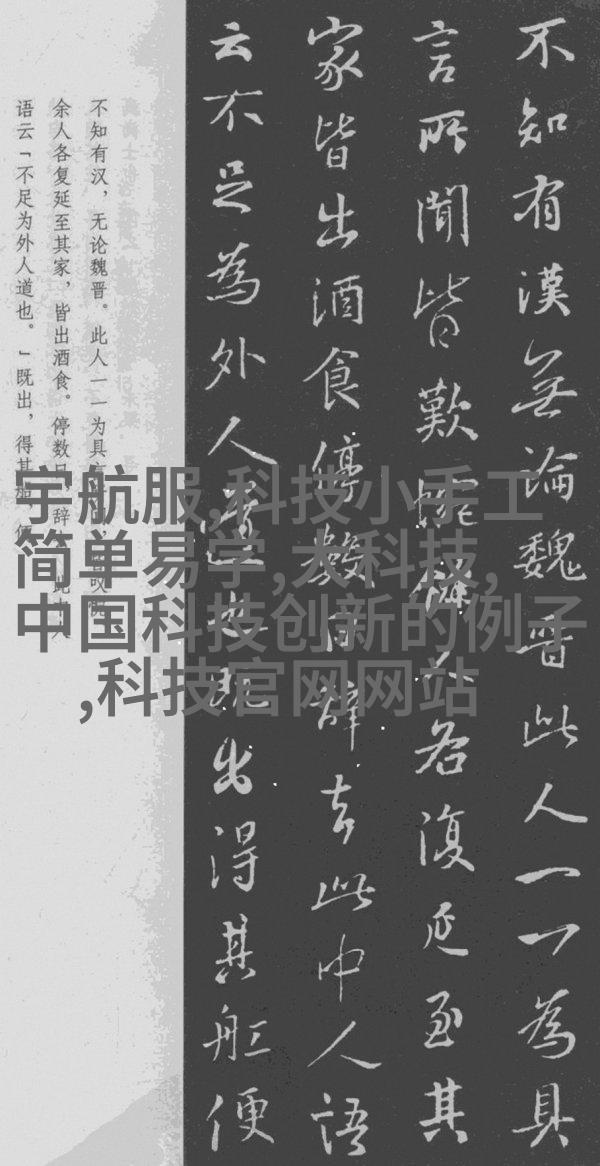 不知有漢無論魏晋此人一一為具
言所聞皆歎惋餘人各復延至其
家皆出酒食停數日辭去此中人語
云不足為外人道也既出得其舡便
不知有汉，无论魏晋。此人一一为具
余人各复延至其家，皆出酒食。停数日 辞 此
语云「不足为外人道也。」既出，得其
宇航服,科技小手工
简单易学,大科技,
中国科技创新的例子
,科技官网网站